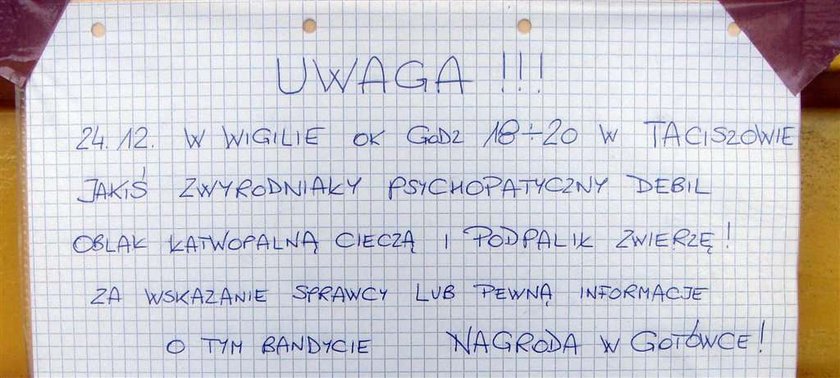 UWAGA !!!
24.12. W WIGILIE OK GODZ 18÷20 W TACISZOWIE
JAKIŚ ZWYRODNIAŁY PSYCHOPATYCZNY DEBIL
OBLAŁ ŁATWOPALNĄ CIECZĄ I PODPALIŁ ZWIERZĘ!
ZA WSKAZANIE SPRAWCY LUB PEWNĄ INFORMACJE
O TYM BANDYCIE NAGRODA W GOTÓWCE!